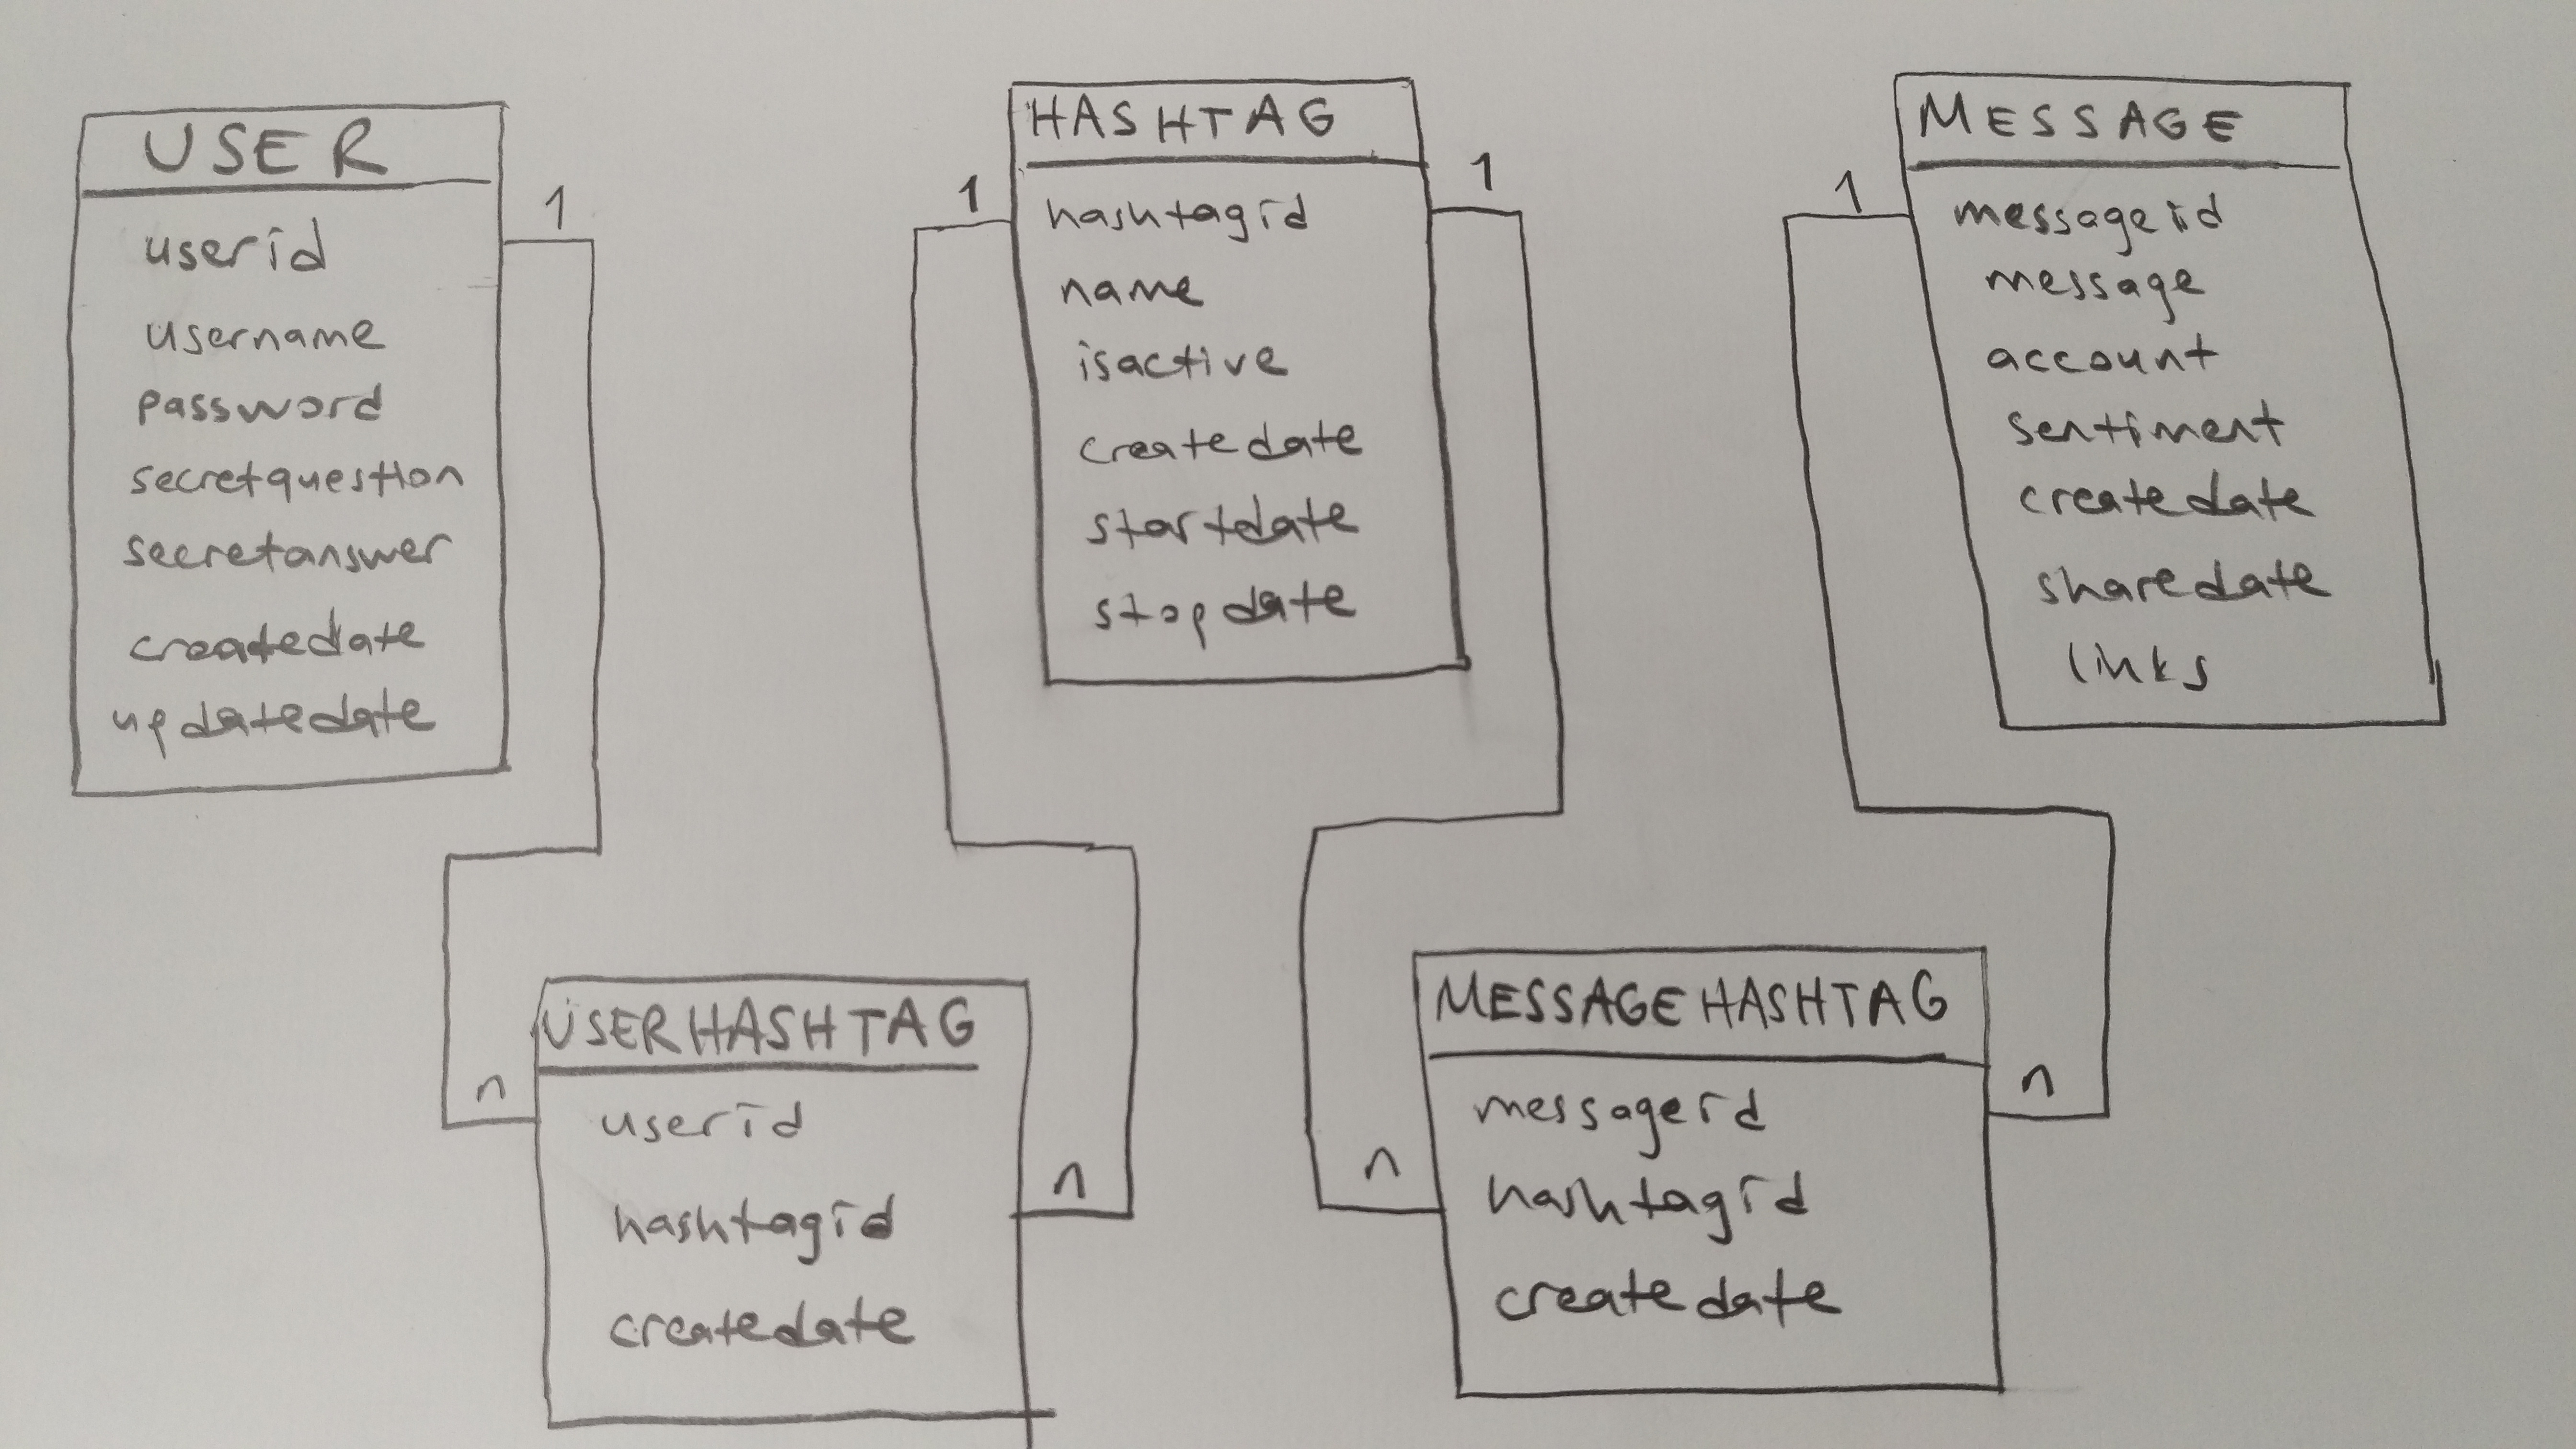 USER
userid
username
password
secretquestion
secretanswer
createdate
updatedate
1
HASHTAG
hashtagid
name
isactive
createdate
startdate
stopdate
1
1
MESSAGE
messageid
message
account
sentiment
createdate
sharedate
links
1
USERHASHTAG
userid
hashtagid
createdate
n
n
MESSAGEHASHTAG
messageid
hashtagid
createdate
n
n